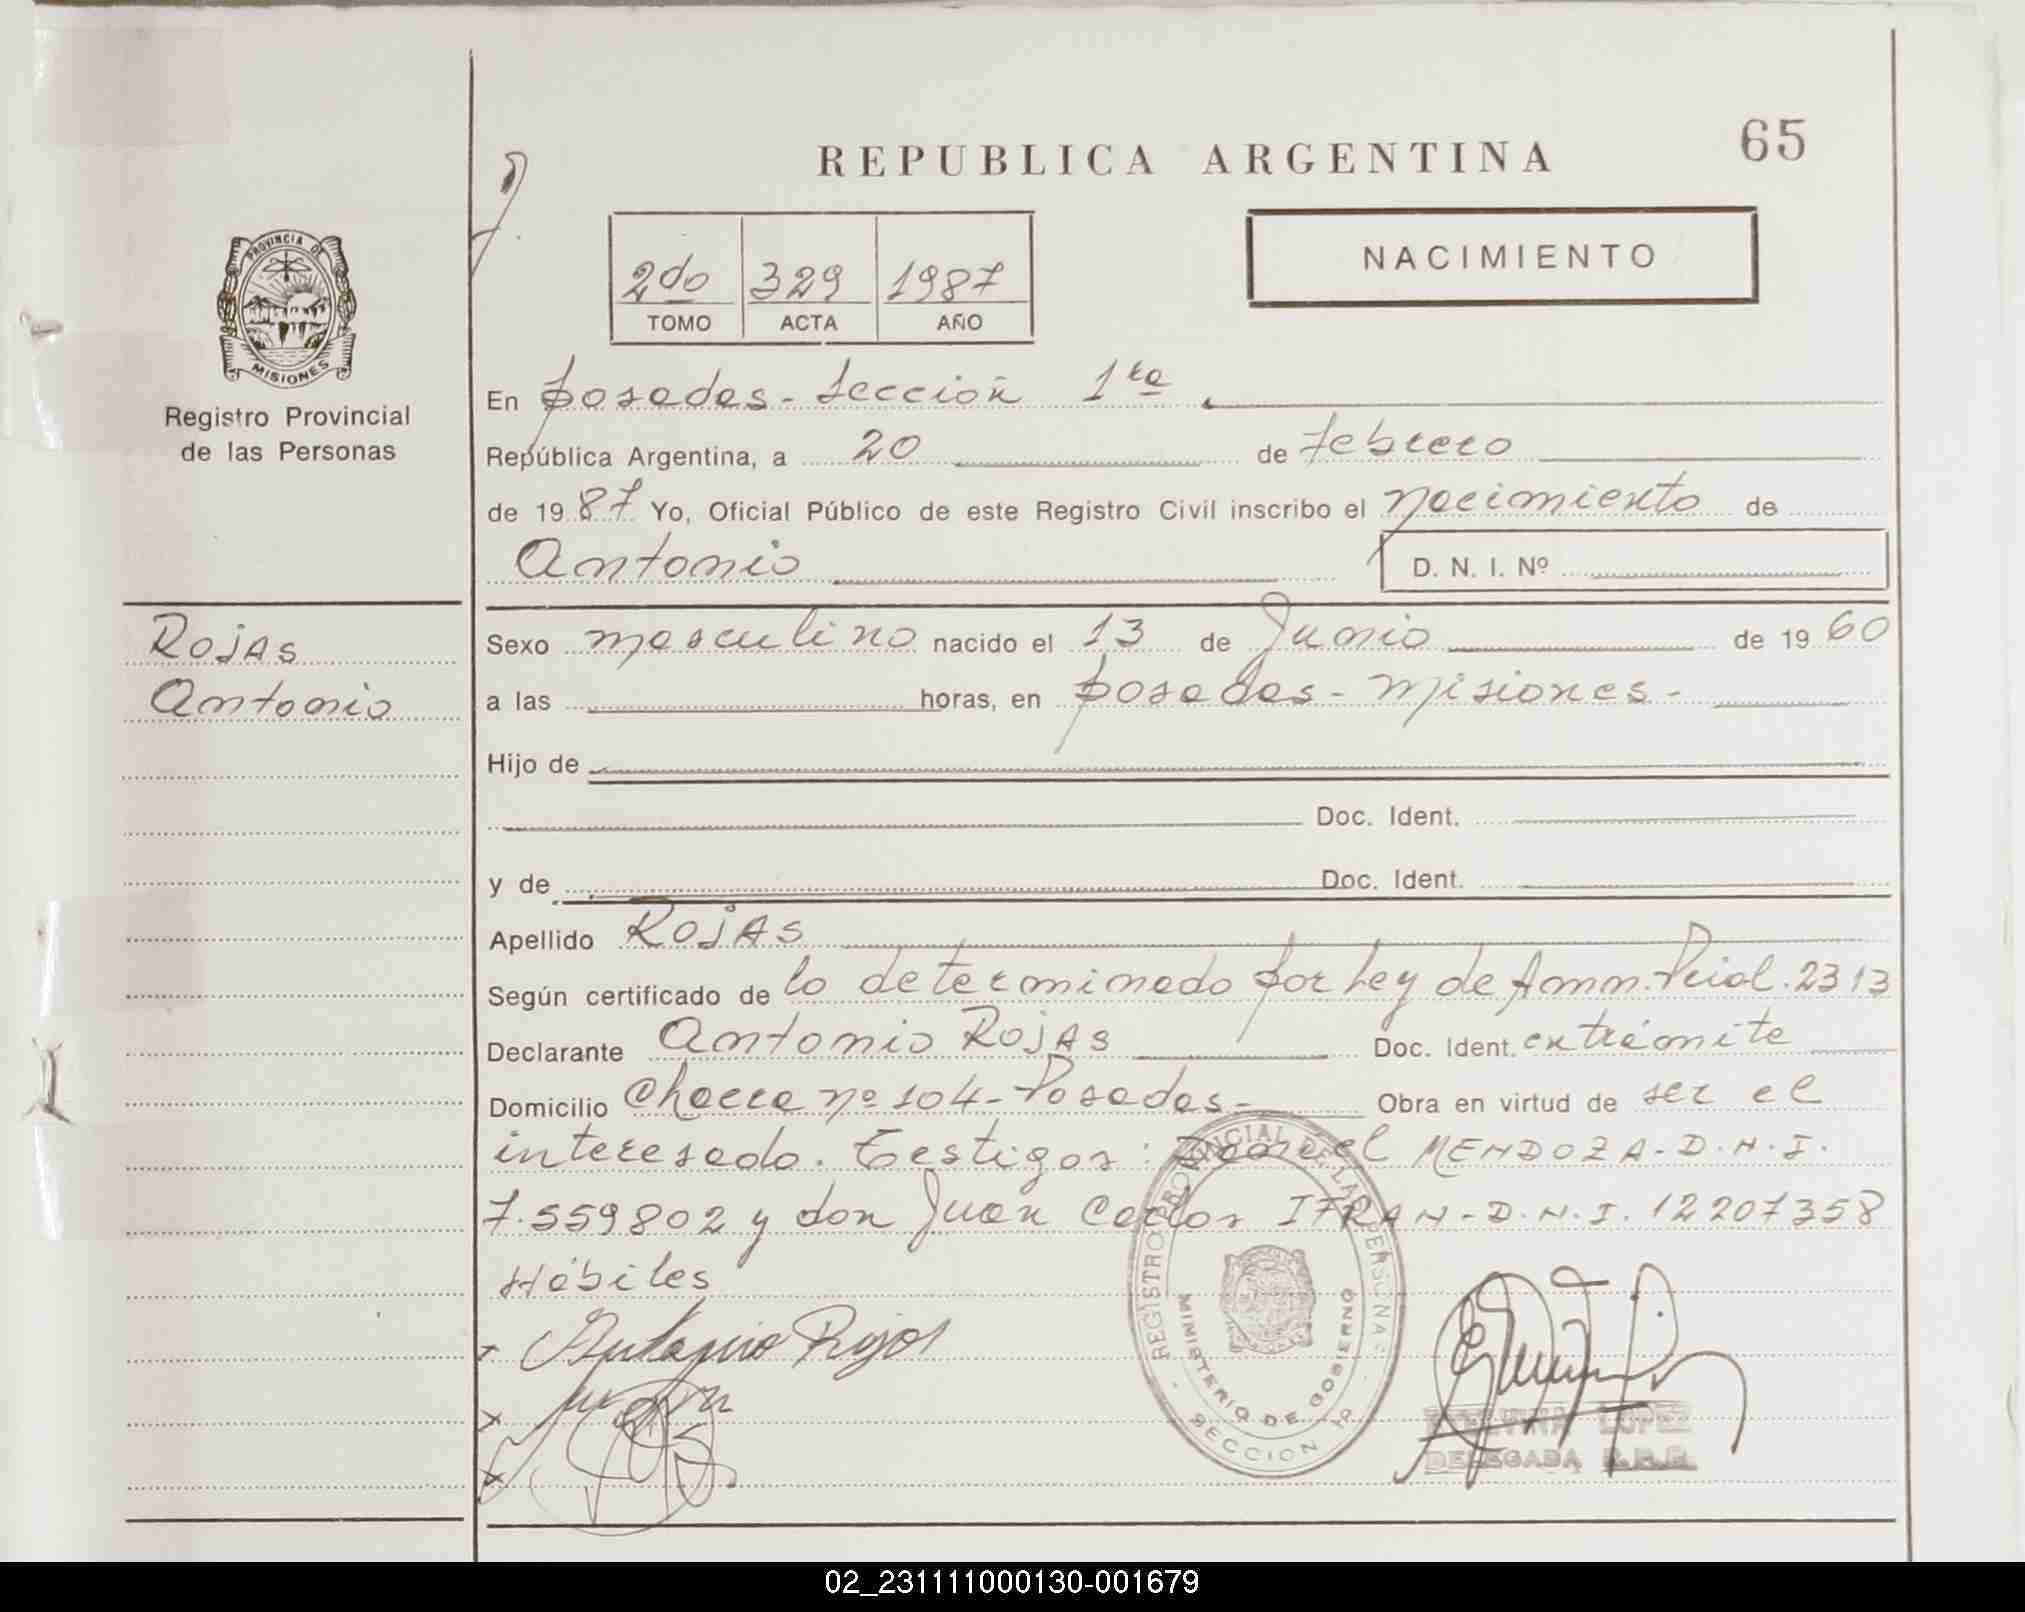 REPUBLICA ARGENTINA
65
2do 329 1987
TOMO ACTA AÑO
NACIMIENTO
PROVINCIA DE MISIONES
Registro Provincial
de las Personas
En Posadas - Sección 1ra
República Argentina, a 20 de Febrero
de 1987 Yo, Oficial Público de este Registro Civil inscribo el nacimiento de
Antonio
D. N. I. Nº
Rojas
Antonio
Sexo masculino nacido el 13 de Junio de 1960
a las horas, en Posadas - Misiones -
Hijo de
Doc. Ident.
y de Doc. Ident.
Apellido Rojas
Según certificado de lo determinado por Ley de Amn. Pcial. 2313
Declarante Antonio Rojas Doc. Ident. en trámite
Domicilio Chacra nº 104 - Posadas - Obra en virtud de ser el
interesado. Testigos: Daniel MENDOZA - D.N.I.
7.559802 y don Juan Carlos IFRAN - D.N.I. 12207358
Hábiles
Antonio Rojas
REGISTRO PROVINCIAL DE LAS PERSONAS
MINISTERIO DE GOBIERNO
SECCION 1ª
LOPEZ
DELEGADA
02_231111000130-001679